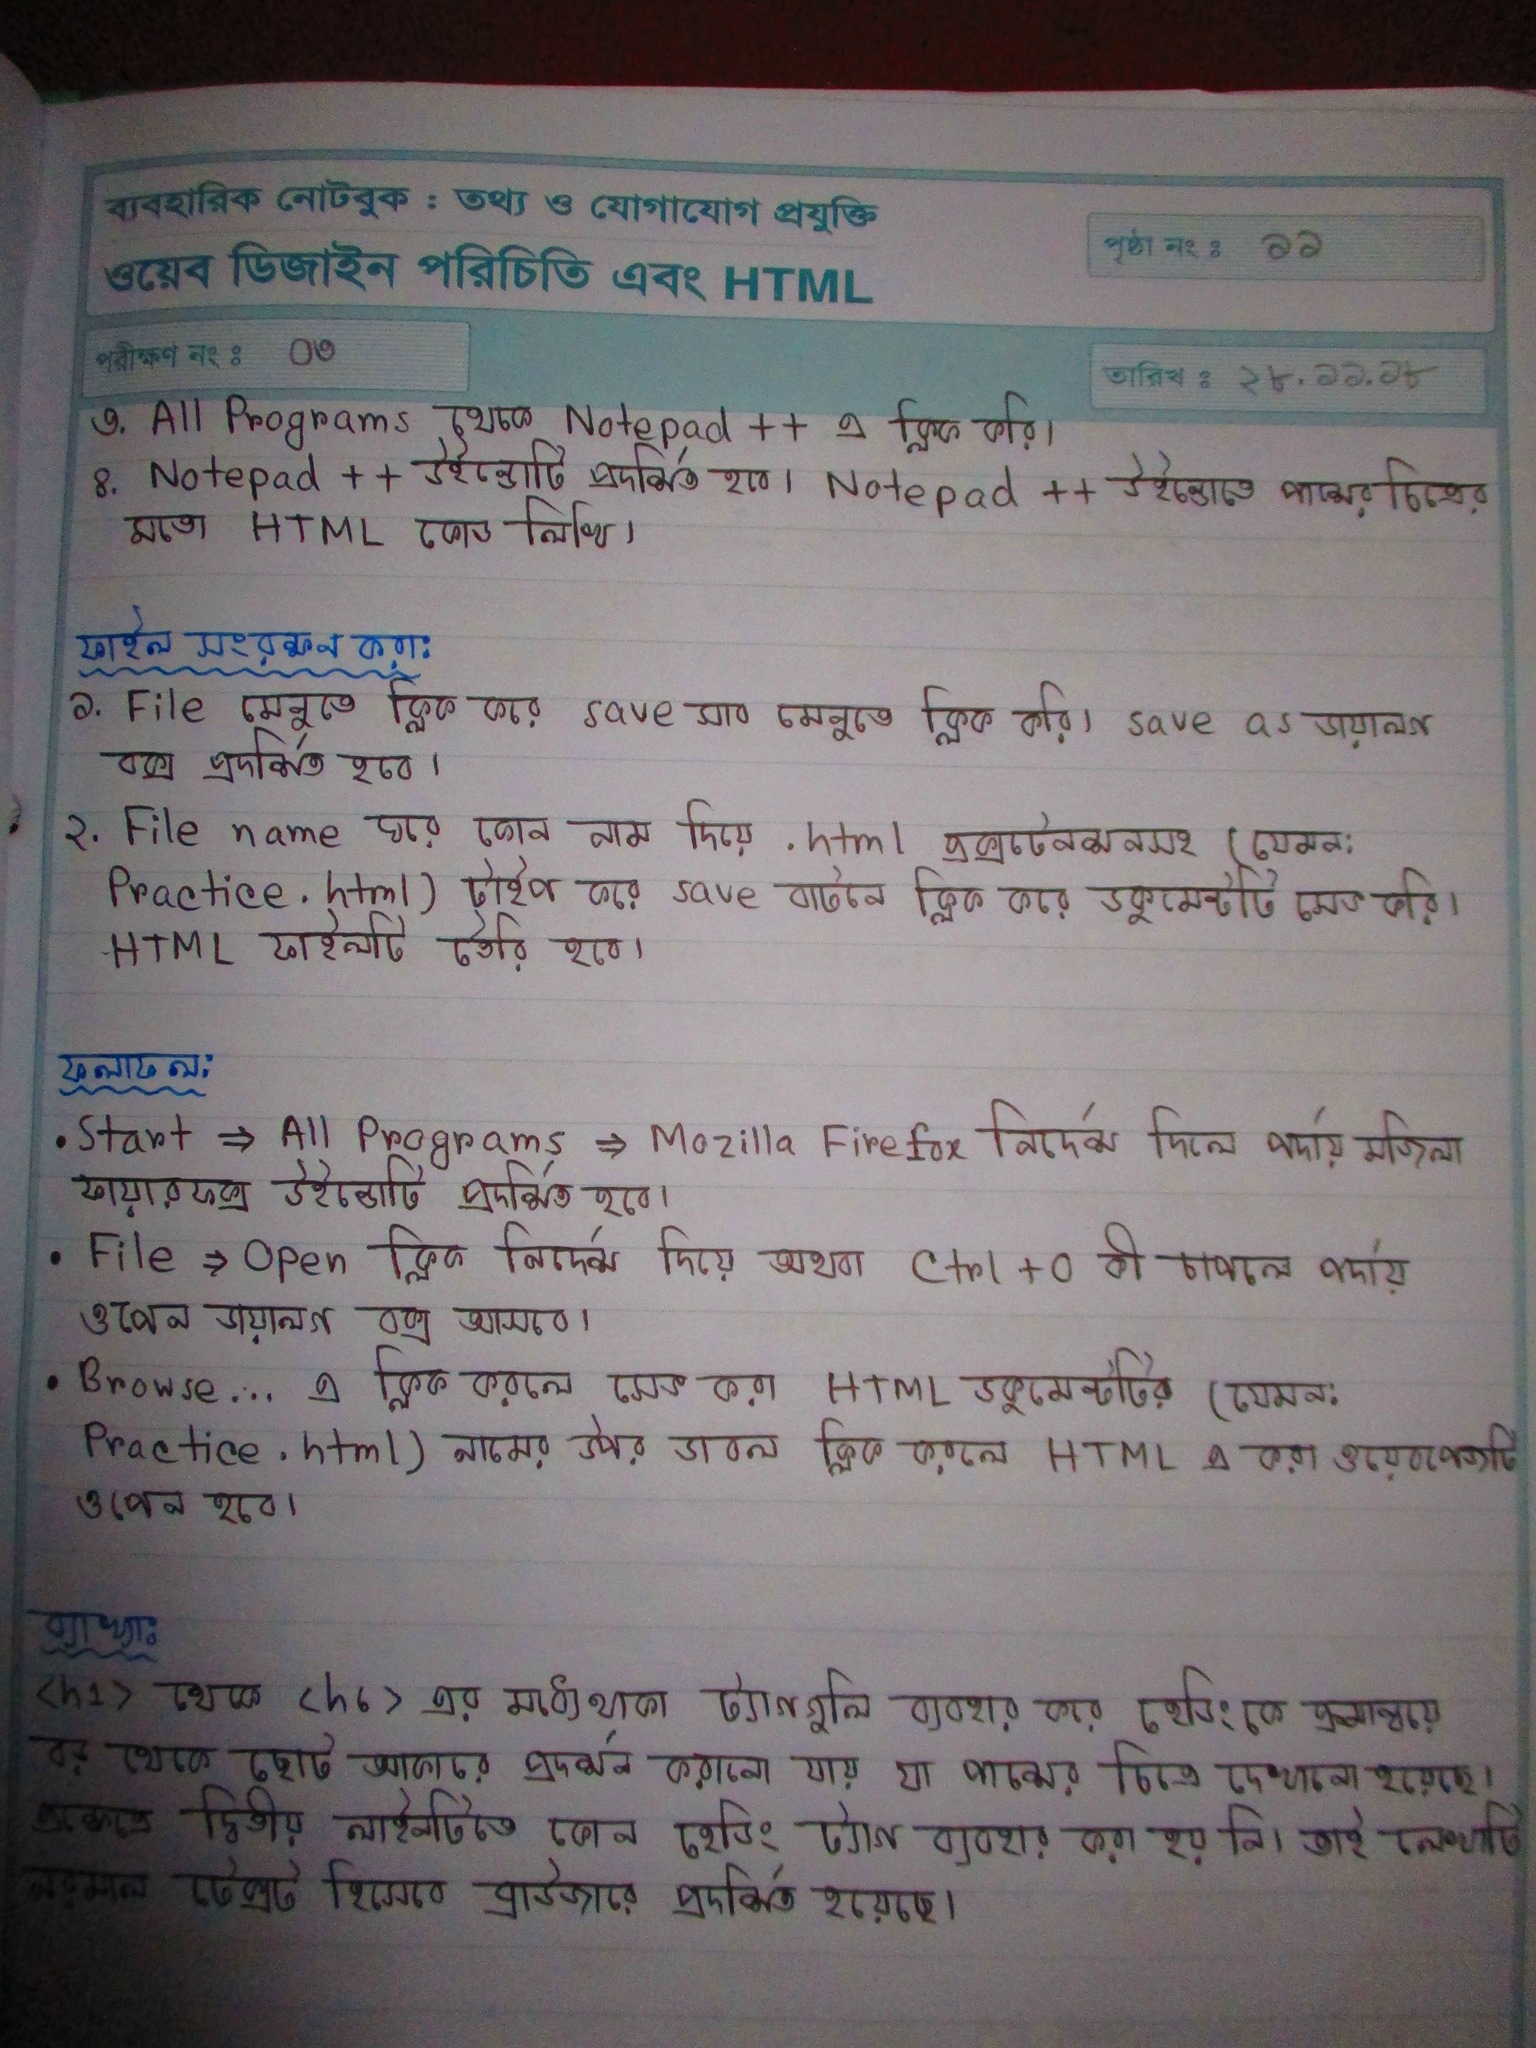 ব্যবহারিক নোটবুক : তথ্য ও যোগাযোগ প্রযুক্তি
ওয়েব ডিজাইন পরিচিতি এবং HTML
পৃষ্ঠা নং : ১১
পরীক্ষণ নং : ০৩
তারিখ : ২৮.১১.১৮
৩. All Programs থেকে Notepad ++ এ ক্লিক করি।
৪. Notepad ++ উইন্ডোটি প্রদর্শিত হবে। Notepad ++ উইন্ডোতে পাশের চিত্রের
মতো HTML কোড লিখি।
ফাইল সংরক্ষন করা:
১. File মেনুতে ক্লিক করে save সাব মেনুতে ক্লিক করি। save as ডায়ালগ
বক্স প্রদর্শিত হবে।
২. File name ঘরে কোন নাম দিয়ে .html এক্সটেনশনসহ (যেমন:
Practice.html) টাইপ করে save বাটনে ক্লিক করে ডকুমেন্টটি সেভ করি।
HTML ফাইলটি তৈরি হবে।
ফলাফল:
• Start ⇒ All Programs ⇒ Mozilla Firefox নির্দেশ দিলে পর্দায় মজিলা
ফায়ারফক্স উইন্ডোটি প্রদর্শিত হবে।
• File ⇒ Open ক্লিক নির্দেশ দিয়ে অথবা Ctrl + O কী চাপলে পর্দায়
ওপেন ডায়ালগ বক্স আসবে।
• Browse... এ ক্লিক করলে সেভ করা HTML ডকুমেন্টটির (যেমন:
Practice.html) নামের উপর ডাবল ক্লিক করলে HTML এ করা ওয়েবপেজটি
ওপেন হবে।
ব্যাখ্যা:
<h1> থেকে <h6> এর মধ্যে থাকা ট্যাগগুলি ব্যবহার করে হেডিংকে ক্রমান্বয়ে
বড় থেকে ছোট আকারে প্রদর্শন করানো যায় যা পাশের চিত্রে দেখানো হয়েছে।
এক্ষেত্রে দ্বিতীয় লাইনটিতে কোন হেডিং ট্যাগ ব্যবহার করা হয় নি। তাই লেখাটি
নরমাল টেক্সট হিসেবে ব্রাউজারে প্রদর্শিত হয়েছে।